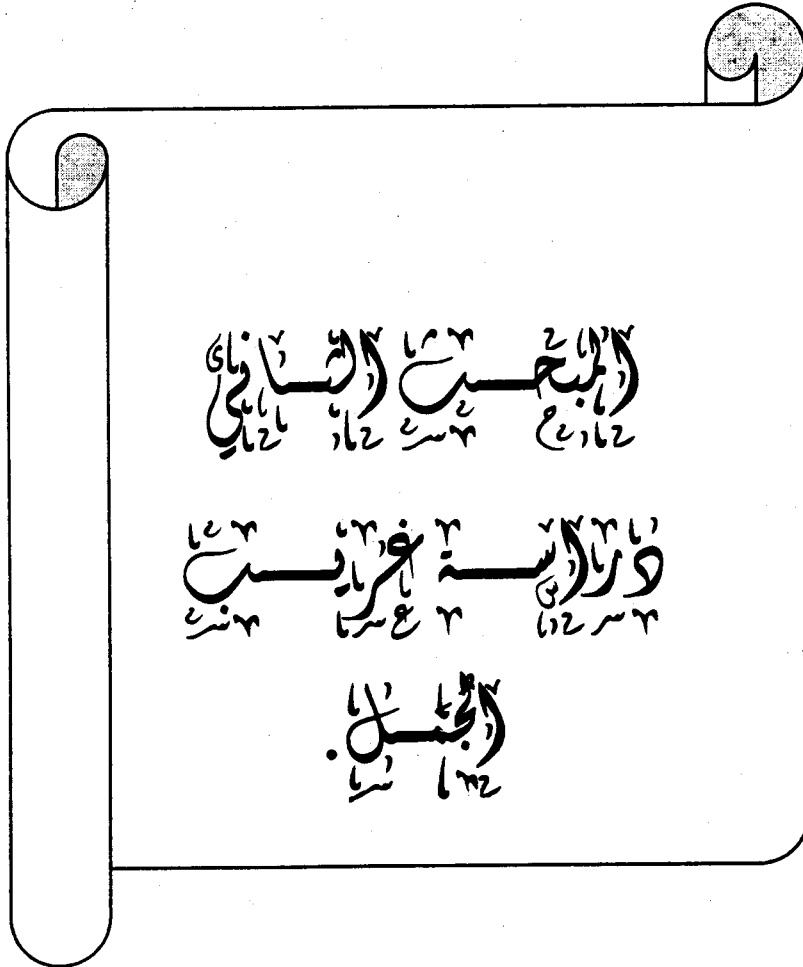 المبحث الثاني
دراسة غريب
الجمل.